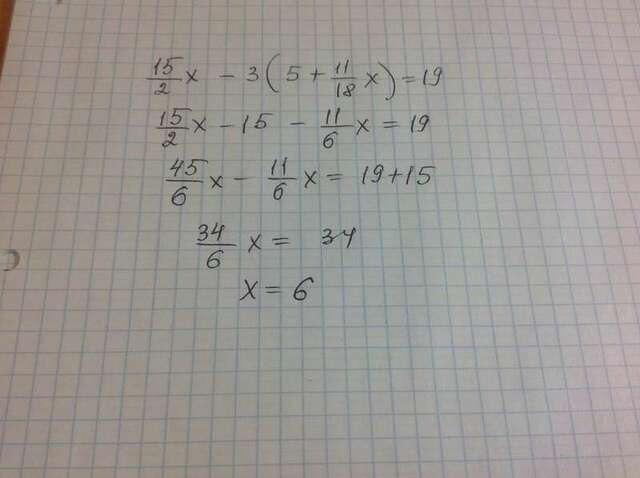 15/2 x - 3(5 + 11/18 x) = 19
15/2 x - 15 - 11/6 x = 19
45/6 x - 11/6 x = 19+15
34/6 x = 34
x = 6